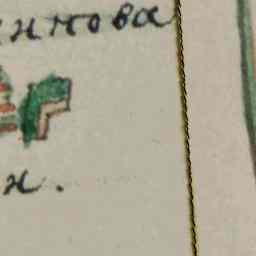 инова
н.